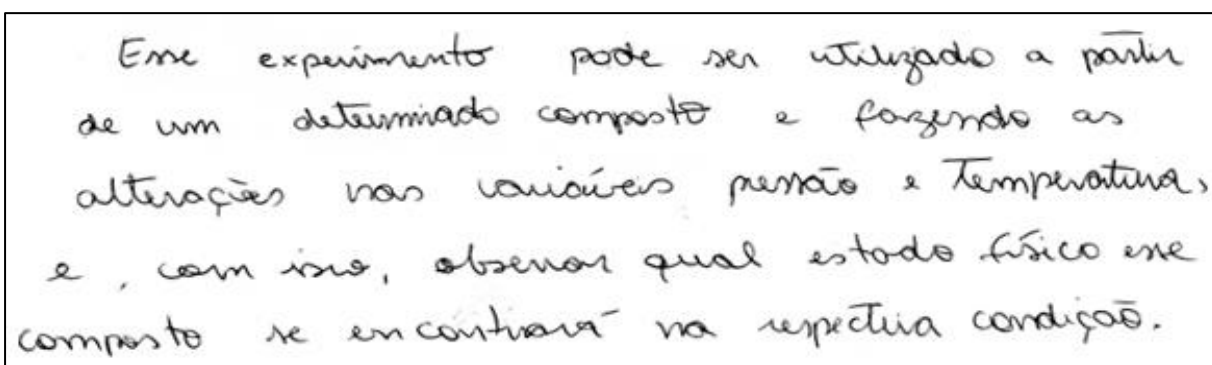 Esse experimento pode ser utilizado a partir
de um determinado composto e fazendo as
alterações nas variáveis pressão e temperatura,
e, com isso, observar qual estado físico esse
composto se encontrará na respectiva condição.